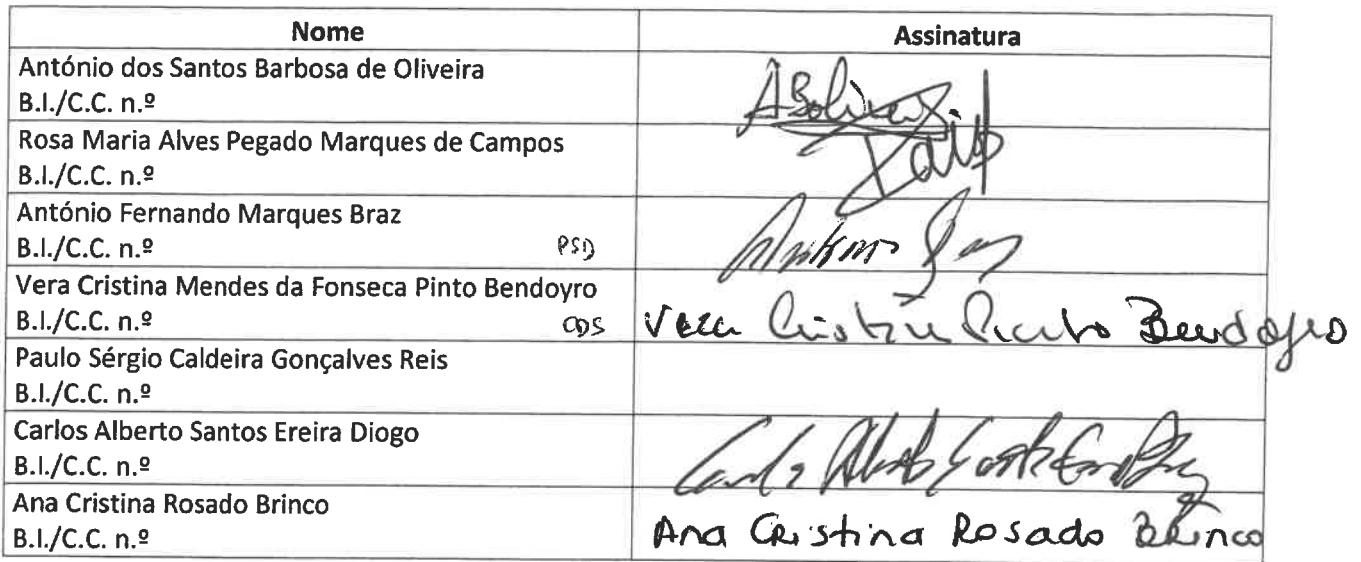 Nome Assinatura
António dos Santos Barbosa de Oliveira
B.I./C.C. n.º
ABoliveira
Rosa Maria Alves Pegado Marques de Campos
B.I./C.C. n.º
António Fernando Marques Braz
B.I./C.C. n.º PSD
Vera Cristina Mendes da Fonseca Pinto Bendoyro
B.I./C.C. n.º CDS
Vera Cristina Pinto Bendoyro
Paulo Sérgio Caldeira Gonçalves Reis
B.I./C.C. n.º
Carlos Alberto Santos Ereira Diogo
B.I./C.C. n.º
Ana Cristina Rosado Brinco
B.I./C.C. n.º
Ana Cristina Rosado Brinco